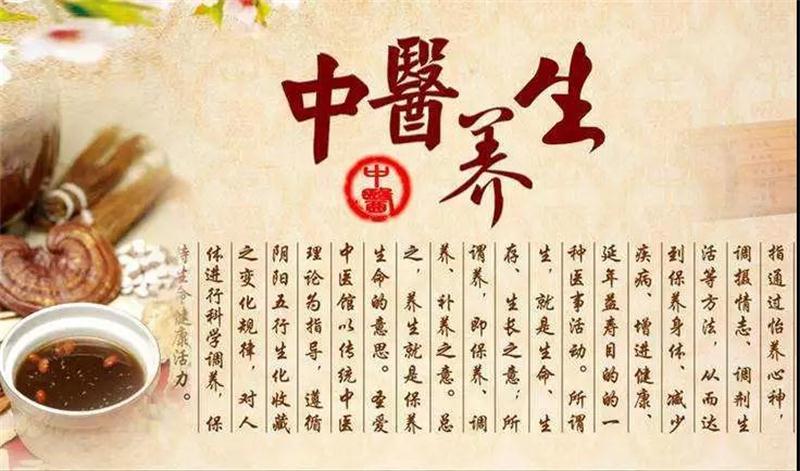 中醫养生
中醫
指通过怡养心神，
调摄情志、调剂生
活等方法，从而达
到保养身体、减少
疾病、增进健康、
延年益寿目的的一
种医事活动。所谓
生，就是生命、生
存、生长之意；所
谓养，即保养、调
养、补养之意。总
之，养生就是保养
生命的意思。圣爱
中医馆以传统中医
理论为指导，遵循
阴阳五行生化收藏
之变化规律，对人
体进行科学调养，保
持生命健康活力。